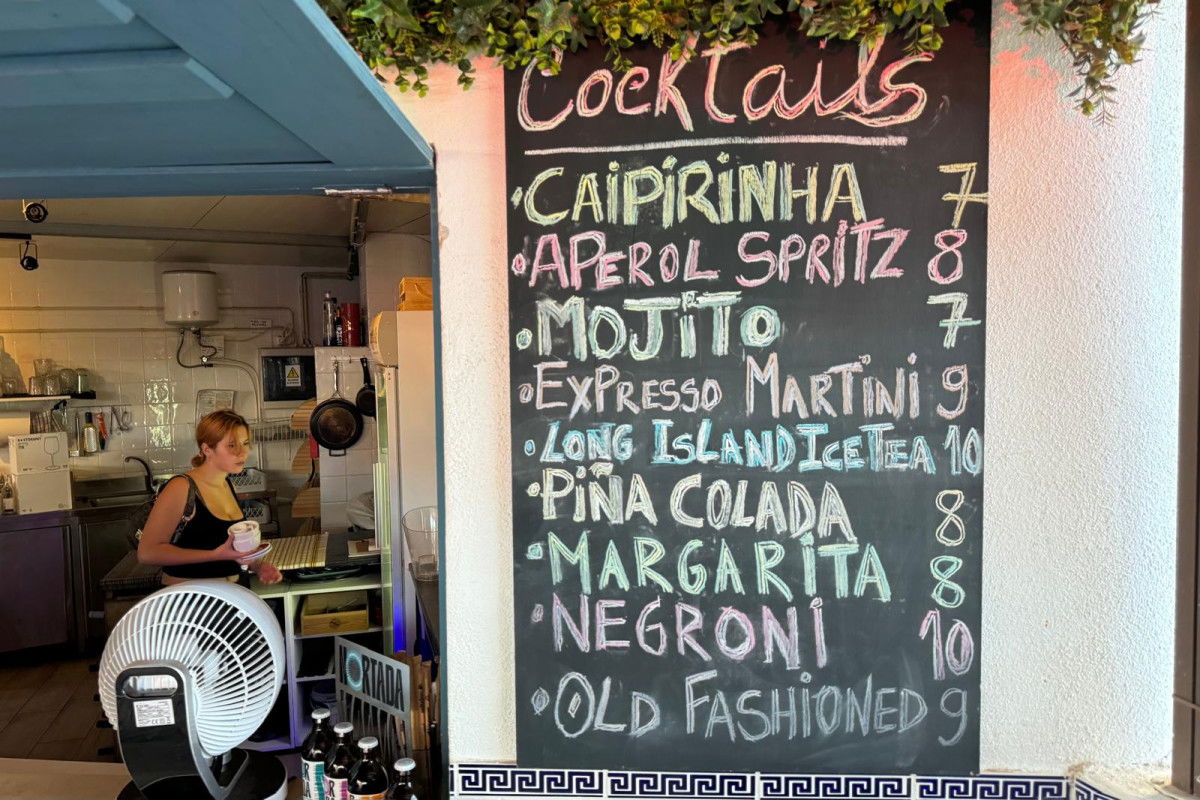 Cocktails
CAiPiRiNHA 7
APeROL SPRiTZ 8
MOJiTO 7
EXPRESSO MARTiNi 9
LONG ISLAND ICETEA 10
PiÑA COLADA 8
MARGARiTA 8
NEGRONi 10
OLD FASHiONED 9
HORTADA